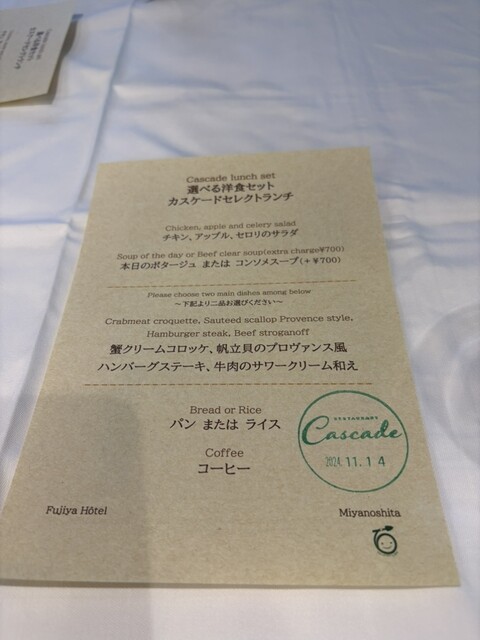 Cascade lunch set
選べる洋食セット
カスケードセレクトランチ
Chicken, apple and celery salad
チキン、アップル、セロリのサラダ
Soup of the day or Beef clear soup(extra charge¥700)
本日のポタージュ または コンソメスープ(+¥700)
Please choose two main dishes among below
～下記より二品お選びください～
Crabmeat croquette, Sauteed scallop Provence style,
Hamburger steak, Beef stroganoff
蟹クリームコロッケ、帆立貝のプロヴァンス風
ハンバーグステーキ、牛肉のサワークリーム和え
Bread or Rice
パン または ライス
Coffee
コーヒー
RESTAURANT
Cascade
2024.11.14
Fujiya Hôtel
Miyanoshita